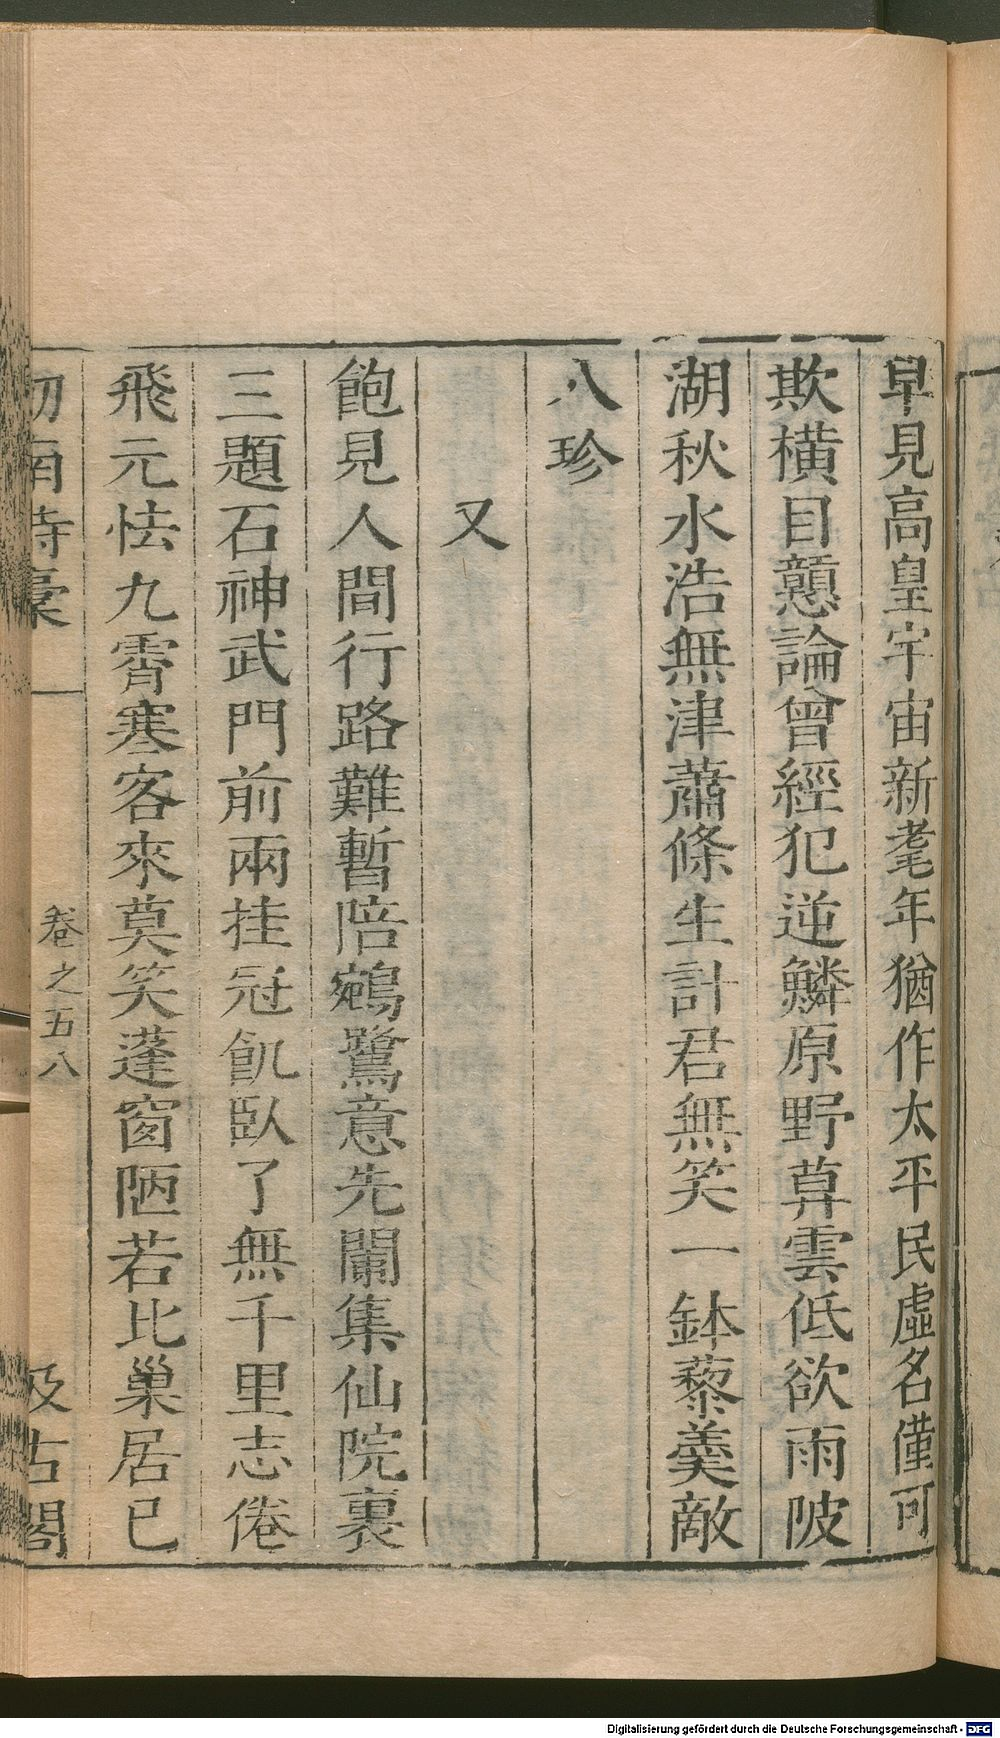 早見高皇宇宙新耄年猶作太平民虛名僅可
欺橫目戇論曾經犯逆鱗原野草雲低欲雨陂
湖秋水浩無津蕭條生計君無笑一鉢藜羹敵
八珍
又
飽見人間行路難暫陪鵷鷺意先闌集仙院裏
三題石神武門前兩挂冠飢臥了無千里志倦
飛元怯九霄寒客來莫笑蓬窗陋若比巢居已
劍南詩稾
卷之五八
汲古閣
Digitalisierung gefördert durch die Deutsche Forschungsgemeinschaft - DFG